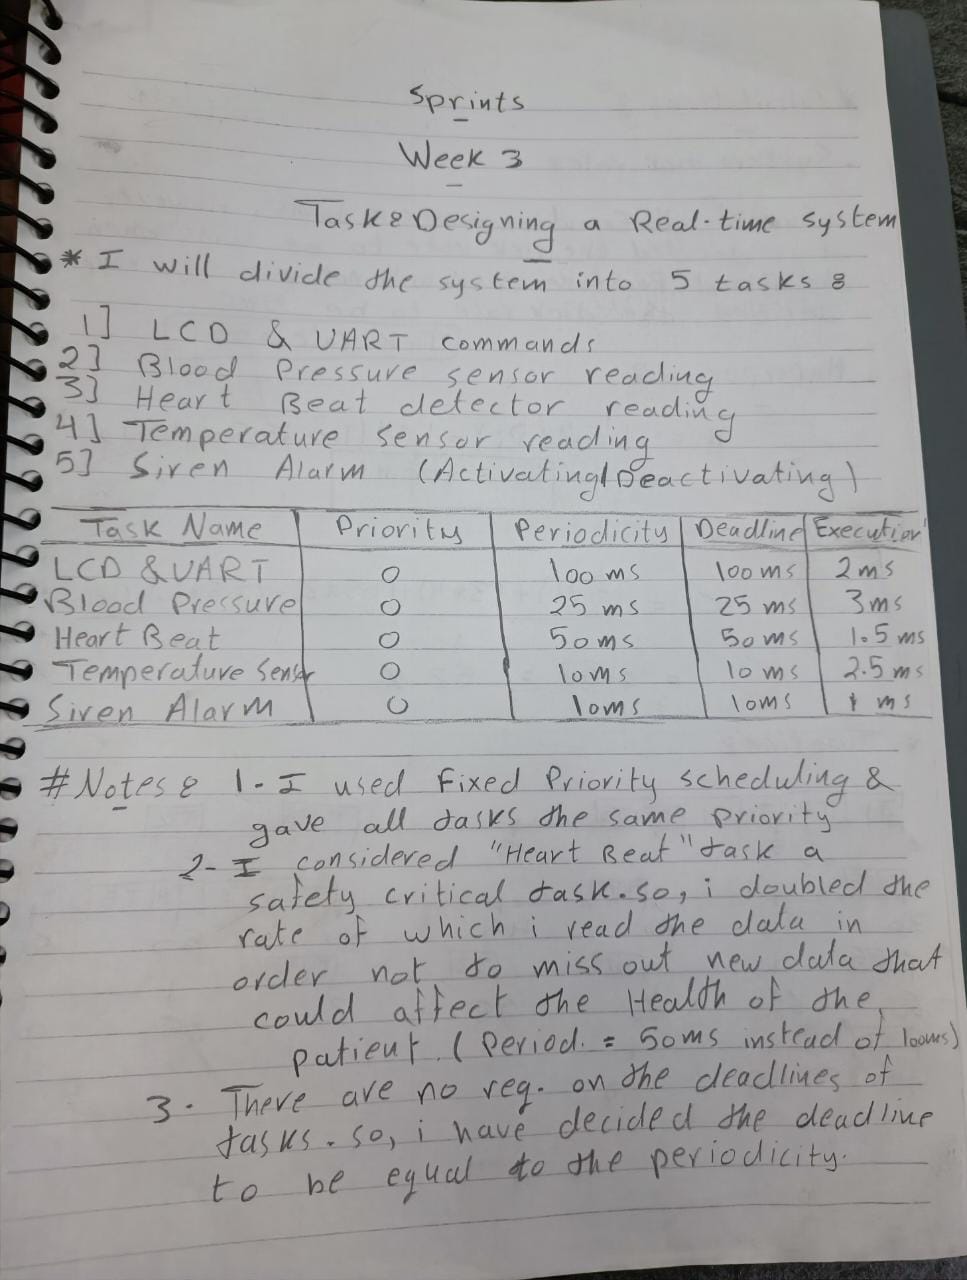 Sprints
Week 3
Task: Designing a Real-time system
* I will divide the system into 5 tasks:
1] LCD & UART commands
2] Blood Pressure sensor reading
3] Heart Beat detector reading
4] Temperature sensor reading
5] Siren Alarm (Activating/Deactivating)
Task Name Priority Periodicity Deadline Execution
LCD & UART 0 100 ms 100 ms 2 ms
Blood Pressure 0 25 ms 25 ms 3 ms
Heart Beat 0 50 ms 50 ms 1.5 ms
Temperature Sensor 0 10 ms 10 ms 2.5 ms
Siren Alarm 0 10 ms 10 ms 1 ms
# Notes: 1- I used Fixed Priority scheduling &
gave all tasks the same priority
2- I considered "Heart Beat" task a
safety critical task. so, i doubled the
rate of which i read the data in
order not to miss out new data that
could affect the Health of the
patient. (Period. = 50ms instead of 100ms)
3. There are no req. on the deadlines of
tasks. so, i have decided the deadline
to be equal to the periodicity.